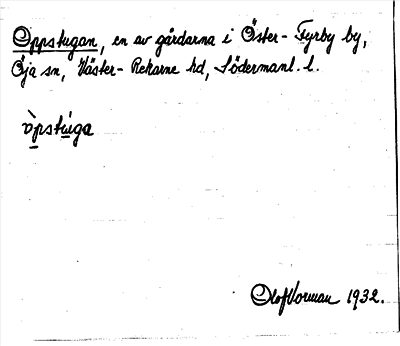 Oppstugan, en av gårdarna i Öster-Fyrby by,
Öja sn, Väster-Rekarne hd, Södermanl. l.
òpstùga
Olof Vorman 1932.